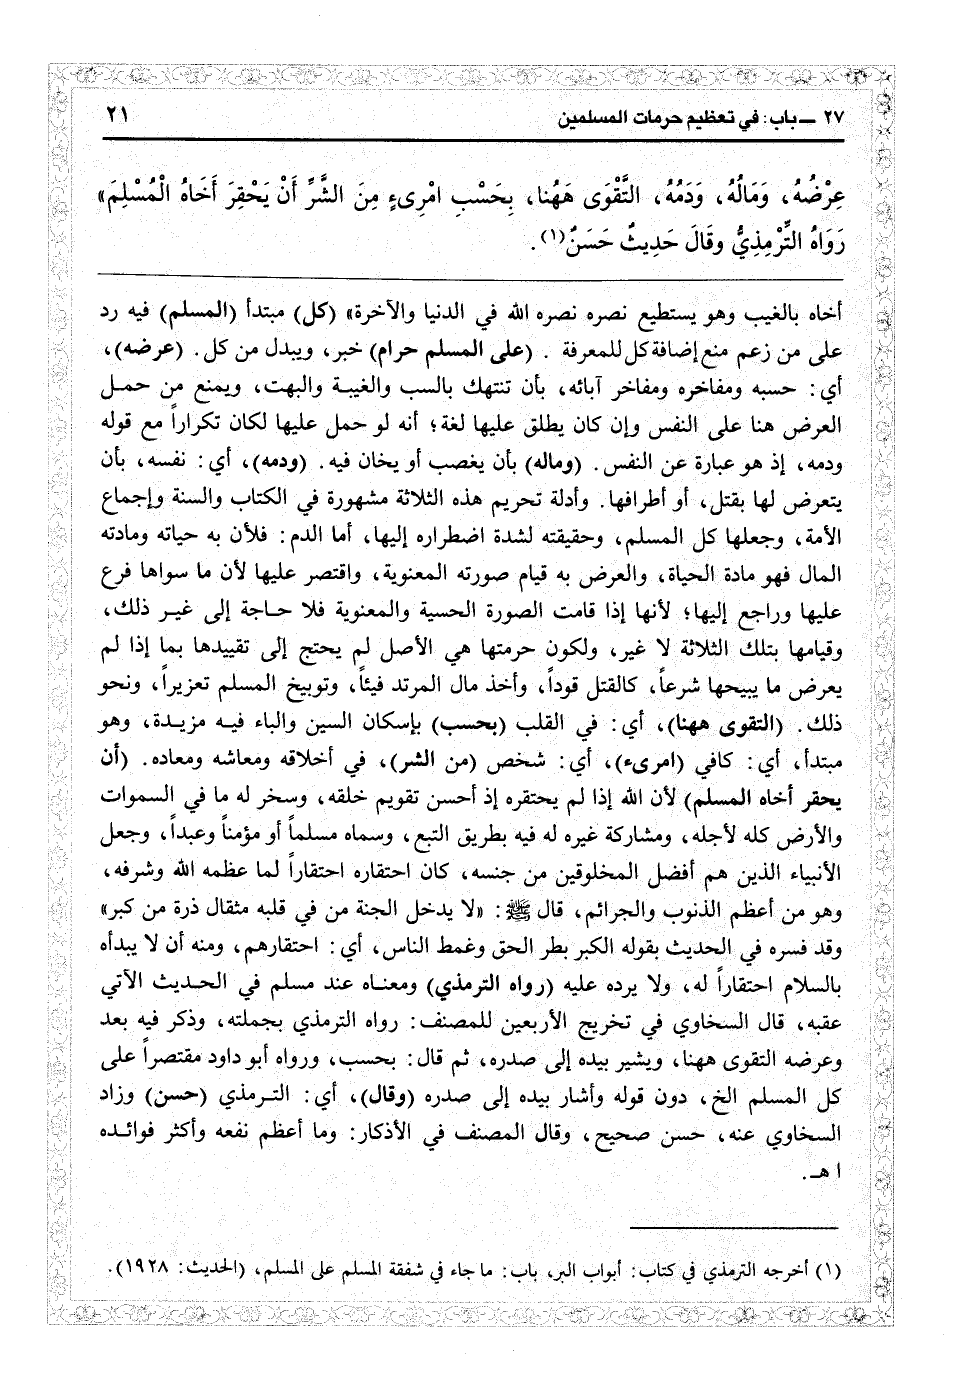 ٢٧ ــ باب: في تعظيم حرمات المسلمين ٢١
عِرْضُهُ، وَمَالُهُ، وَدَمُهُ، التَّقْوَى هَهُنا، بِحَسْبِ امْرِىءٍ مِنَ الشَّرِّ أَنْ يَحْقِرَ أَخَاهُ الْمُسْلِمَ»
رَوَاهُ التِّرْمِذِيُّ وقَالَ حَدِيثٌ حَسَنٌ(١).
أخاه بالغيب وهو يستطيع نصره نصره الله في الدنيا والآخرة» (كل) مبتدأ (المسلم) فيه رد
على من زعم منع إضافة كل للمعرفة . (على المسلم حرام) خبر، ويبدل من كل. (عرضه)،
أي: حسبه ومفاخره ومفاخر آبائه، بأن تنتهك بالسب والغيبة والبهت، ويمنع من حمـل
العرض هنا على النفس وإن كان يطلق عليها لغة؛ أنه لو حمل عليها لكان تكراراً مع قوله
ودمه، إذ هو عبارة عن النفس. (وماله) بأن يغصب أو يخان فيه. (ودمه)، أي: نفسه، بأن
يتعرض لها بقتل، أو أطرافها. وأدلة تحريم هذه الثلاثة مشهورة في الكتاب والسنة وإجماع
الأمة، وجعلها كل المسلم، وحقيقته لشدة اضطراره إليها، أما الدم: فلأن به حياته ومادته
المال فهو مادة الحياة، والعرض به قيام صورته المعنوية، واقتصر عليها لأن ما سواها فرع
عليها وراجع إليها؛ لأنها إذا قامت الصورة الحسية والمعنوية فلا حـاجة إلى غيـر ذلك،
وقيامها بتلك الثلاثة لا غير، ولكون حرمتها هي الأصل لم يحتج إلى تقييدها بما إذا لم
يعرض ما يبيحها شرعاً، كالقتل قوداً، وأخذ مال المرتد فيئاً، وتوبيخ المسلم تعزيراً، ونحو
ذلك. (التقوى ههنا)، أي: في القلب (بحسب) بإسكان السين والباء فيـه مزيـدة، وهو
مبتدأ، أي: كافي (امرىء)، أي: شخص (من الشر)، في أخلاقه ومعاشه ومعاده. (أن
يحقر أخاه المسلم) لأن الله إذا لم يحتقره إذ أحسن تقويم خلقه، وسخر له ما في السموات
والأرض كله لأجله، ومشاركة غيره له فيه بطريق التبع، وسماه مسلماً أو مؤمناً وعبداً، وجعل
الأنبياء الذين هم أفضل المخلوقين من جنسه، كان احتقاره احتقاراً لما عظمه الله وشرفه،
وهو من أعظم الذنوب والجرائم، قال ﷺ: «لا يدخل الجنة من في قلبه مثقال ذرة من كبر»
وقد فسره في الحديث بقوله الكبر بطر الحق وغمط الناس، أي: احتقارهم، ومنه أن لا يبدأه
بالسلام احتقاراً له، ولا يرده عليه (رواه الترمذي) ومعنـاه عند مسلم في الحـديث الآتي
عقبه، قال السخاوي في تخريج الأربعين للمصنف: رواه الترمذي بجملته، وذكر فيه بعد
وعرضه التقوى ههنا، ويشير بيده إلى صدره، ثم قال: بحسب، ورواه أبو داود مقتصراً على
كل المسلم الخ، دون قوله وأشار بيده إلى صدره (وقال)، أي: التـرمذي (حسن) وزاد
السخاوي عنه، حسن صحيح، وقال المصنف في الأذكار: وما أعظم نفعه وأكثر فوائـده
ا هـ.
(١) أخرجه الترمذي في كتاب: أبواب البر، باب: ما جاء في شفقة المسلم على المسلم، (الحديث: ١٩٢٨).